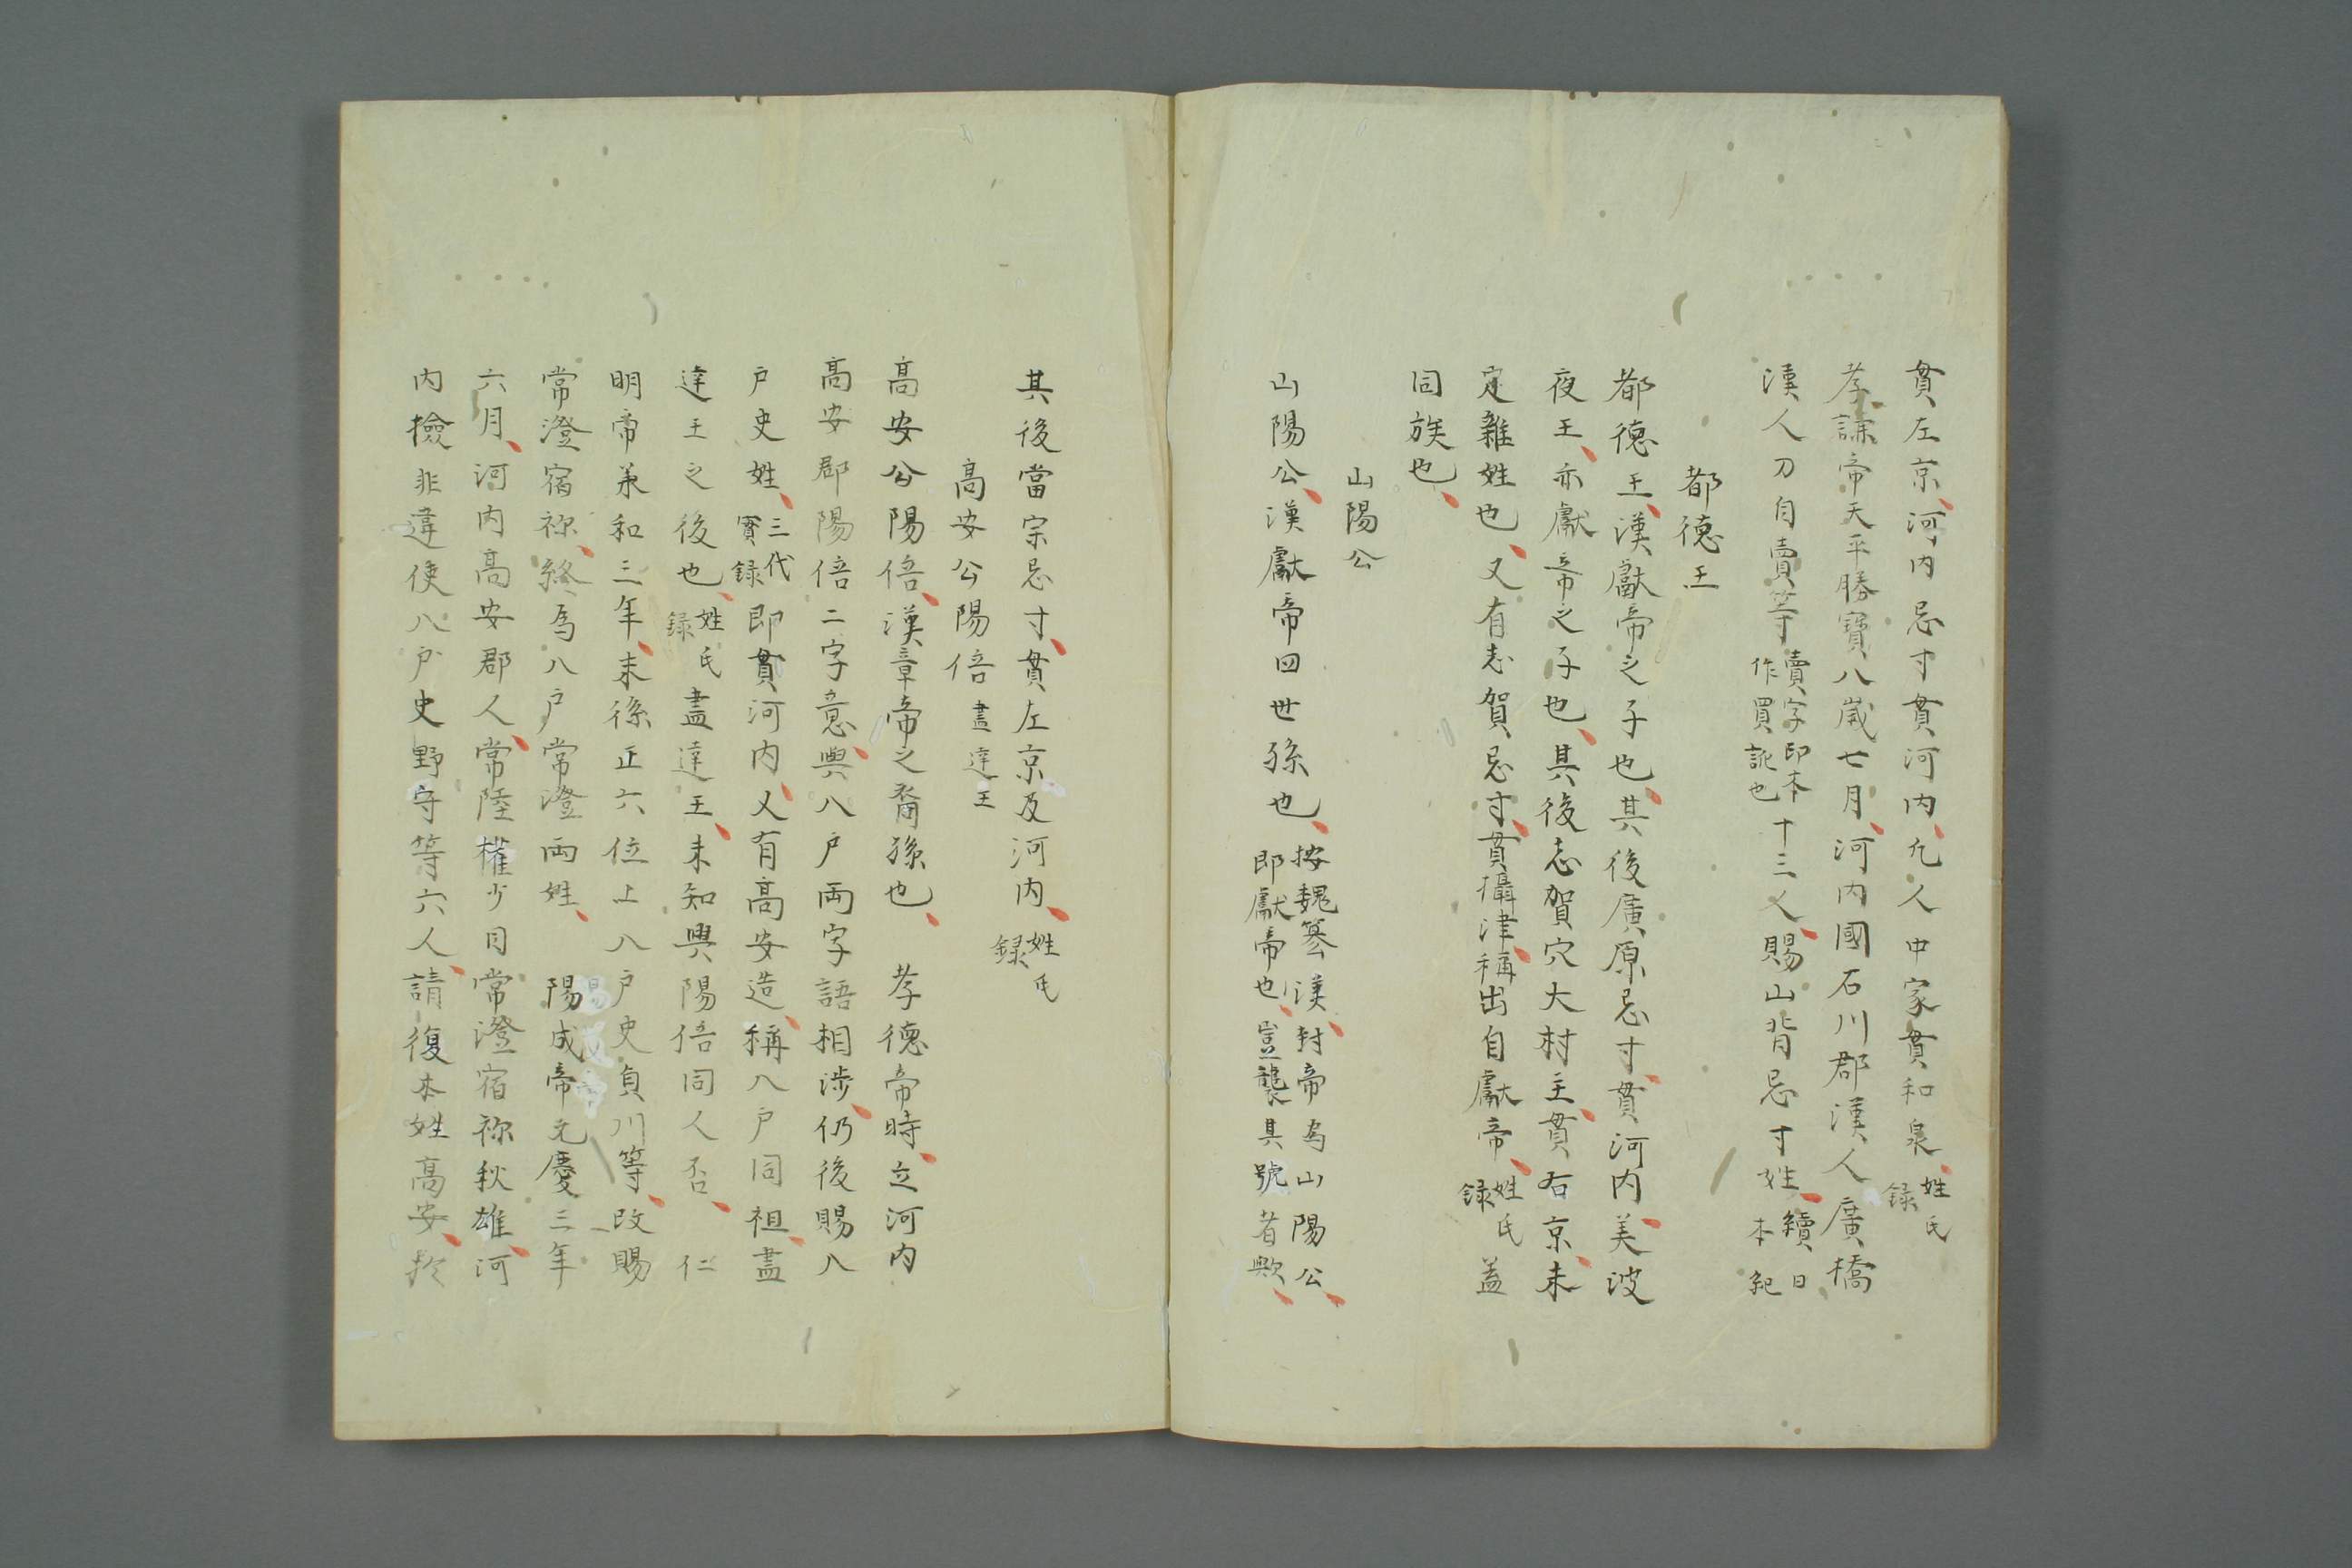 貫左京、河内忌寸貫河内、凢人中家貫和泉、姓氏録
孝謙帝天平勝寶八歳七月、河内國石川郡漢人廣橋
漢人刀自賣等賣字即本作買訛也十三人、賜山背忌寸姓、續日本紀
都德王
都德王、漢獻帝之子也、其後廣原忌寸、貫河内、美波
夜王、亦獻帝之子也、其後志賀穴大村主、貫右京、未
定雜姓也、又有志賀忌寸、貫攝津、稱出自獻帝、姓氏録盖
同族也、
山陽公
山陽公、漢獻帝四世孫也、按魏篡漢、封帝為山陽公、即獻帝也、豈襲其號者歟、
其後當宗忌寸、貫左京及河内、姓氏録
高安公陽倍 盡達王
高安公陽倍、漢章帝之裔孫也、 孝德帝時、立河内
高安郡陽倍二字意與八戶両字語相渉、仍後賜八
戶史姓、三代實録即貫河内、又有高安造、稱八戶同祖、盡
達王之後也、姓氏録盡達王、未知與陽倍同人否、 仁
明帝承和三年、末孫正六位上八戶史負川等、改賜
常澄宿祢、終為八戶常澄両姓、 陽成帝元慶三年
六月、河内高安郡人、常陸權少目常澄宿祢秋雄、河
内檢非違使八戶史野守等六人、請復本姓高安、於